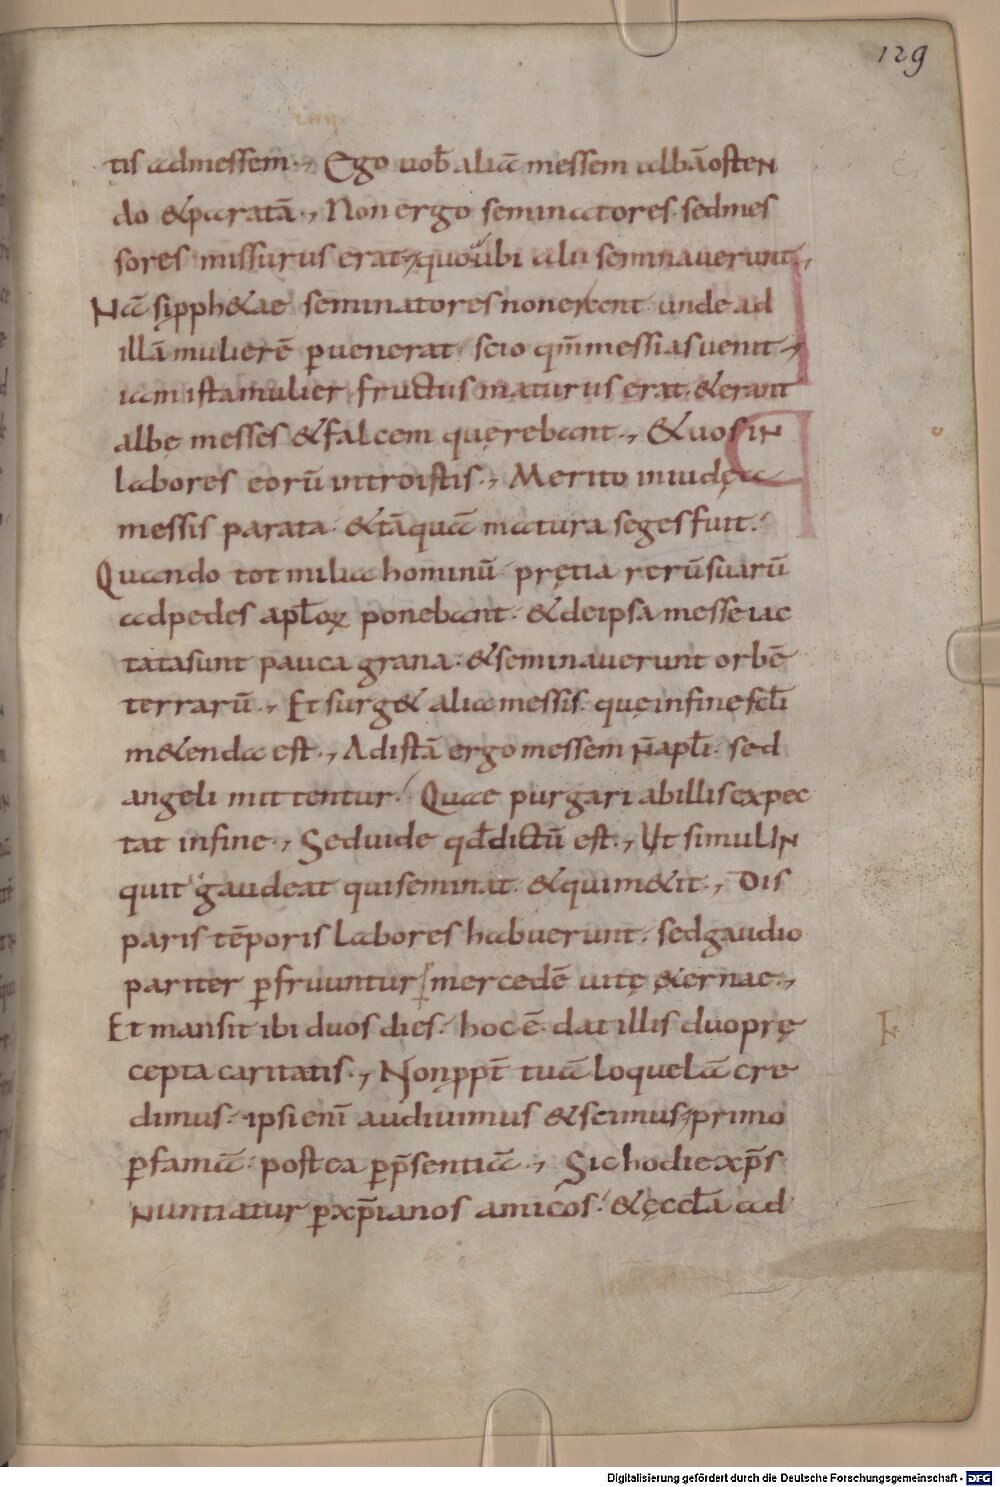 129
tis admessem·, Ego uob̄ aliā messem albā osten
do &paratā·, Non ergo seminatores· sedmes
sores missurus erat· quo ubi alii seminauerunt·,
Nā si ꝓph&ae seminatores non essent unde ad
illā mulierē ꝑuenerat· scio qm̄ messias uenit·
iam ista mulier fructus maturus erat· &erant
albę messes &falcem quęrebant·, &uos in
labores eorū introistis·, Merito in iudęa
messis parata· &tāquā matura seges fuit·
Quando tot milia hominū prętia rerū suarū
adpedes apl̄oꝝ ponebant· &deipsa messe iac
tata sunt pauca grana· &seminauerunt orbē
terrarū·, Et surg& alia messis· quę infine sc̄li
m&enda est·, Ad istā ergo messem n̄ apl̄i· sed
angeli mittentur· Quae purgari abillis expec
tat infine·, Sed uide qd̄ dictū est·, Ut simul in
quit gaudeat qui seminat· &qui m&it·, Dis
paris tēporis labores habuerunt· sed gaudio
pariter ꝑfruuntur mercedē uitę &ernae·,
Et mansit ibi duos dies· hoc ē· dat illis duo prę
cepta caritatis·, Non ꝓpt̄ tuā loquelā cre
dimus· ipsi eni̅ audiuimus &scimus· primo
ꝑ famā· postea ꝑ p̄sentiā·, Sic hodie xp̄s
nuntiatur ꝑ xp̄ianos amicos· &ęccl̄a ad
Digitalisierung gefördert durch die Deutsche Forschungsgemeinschaft - DFG